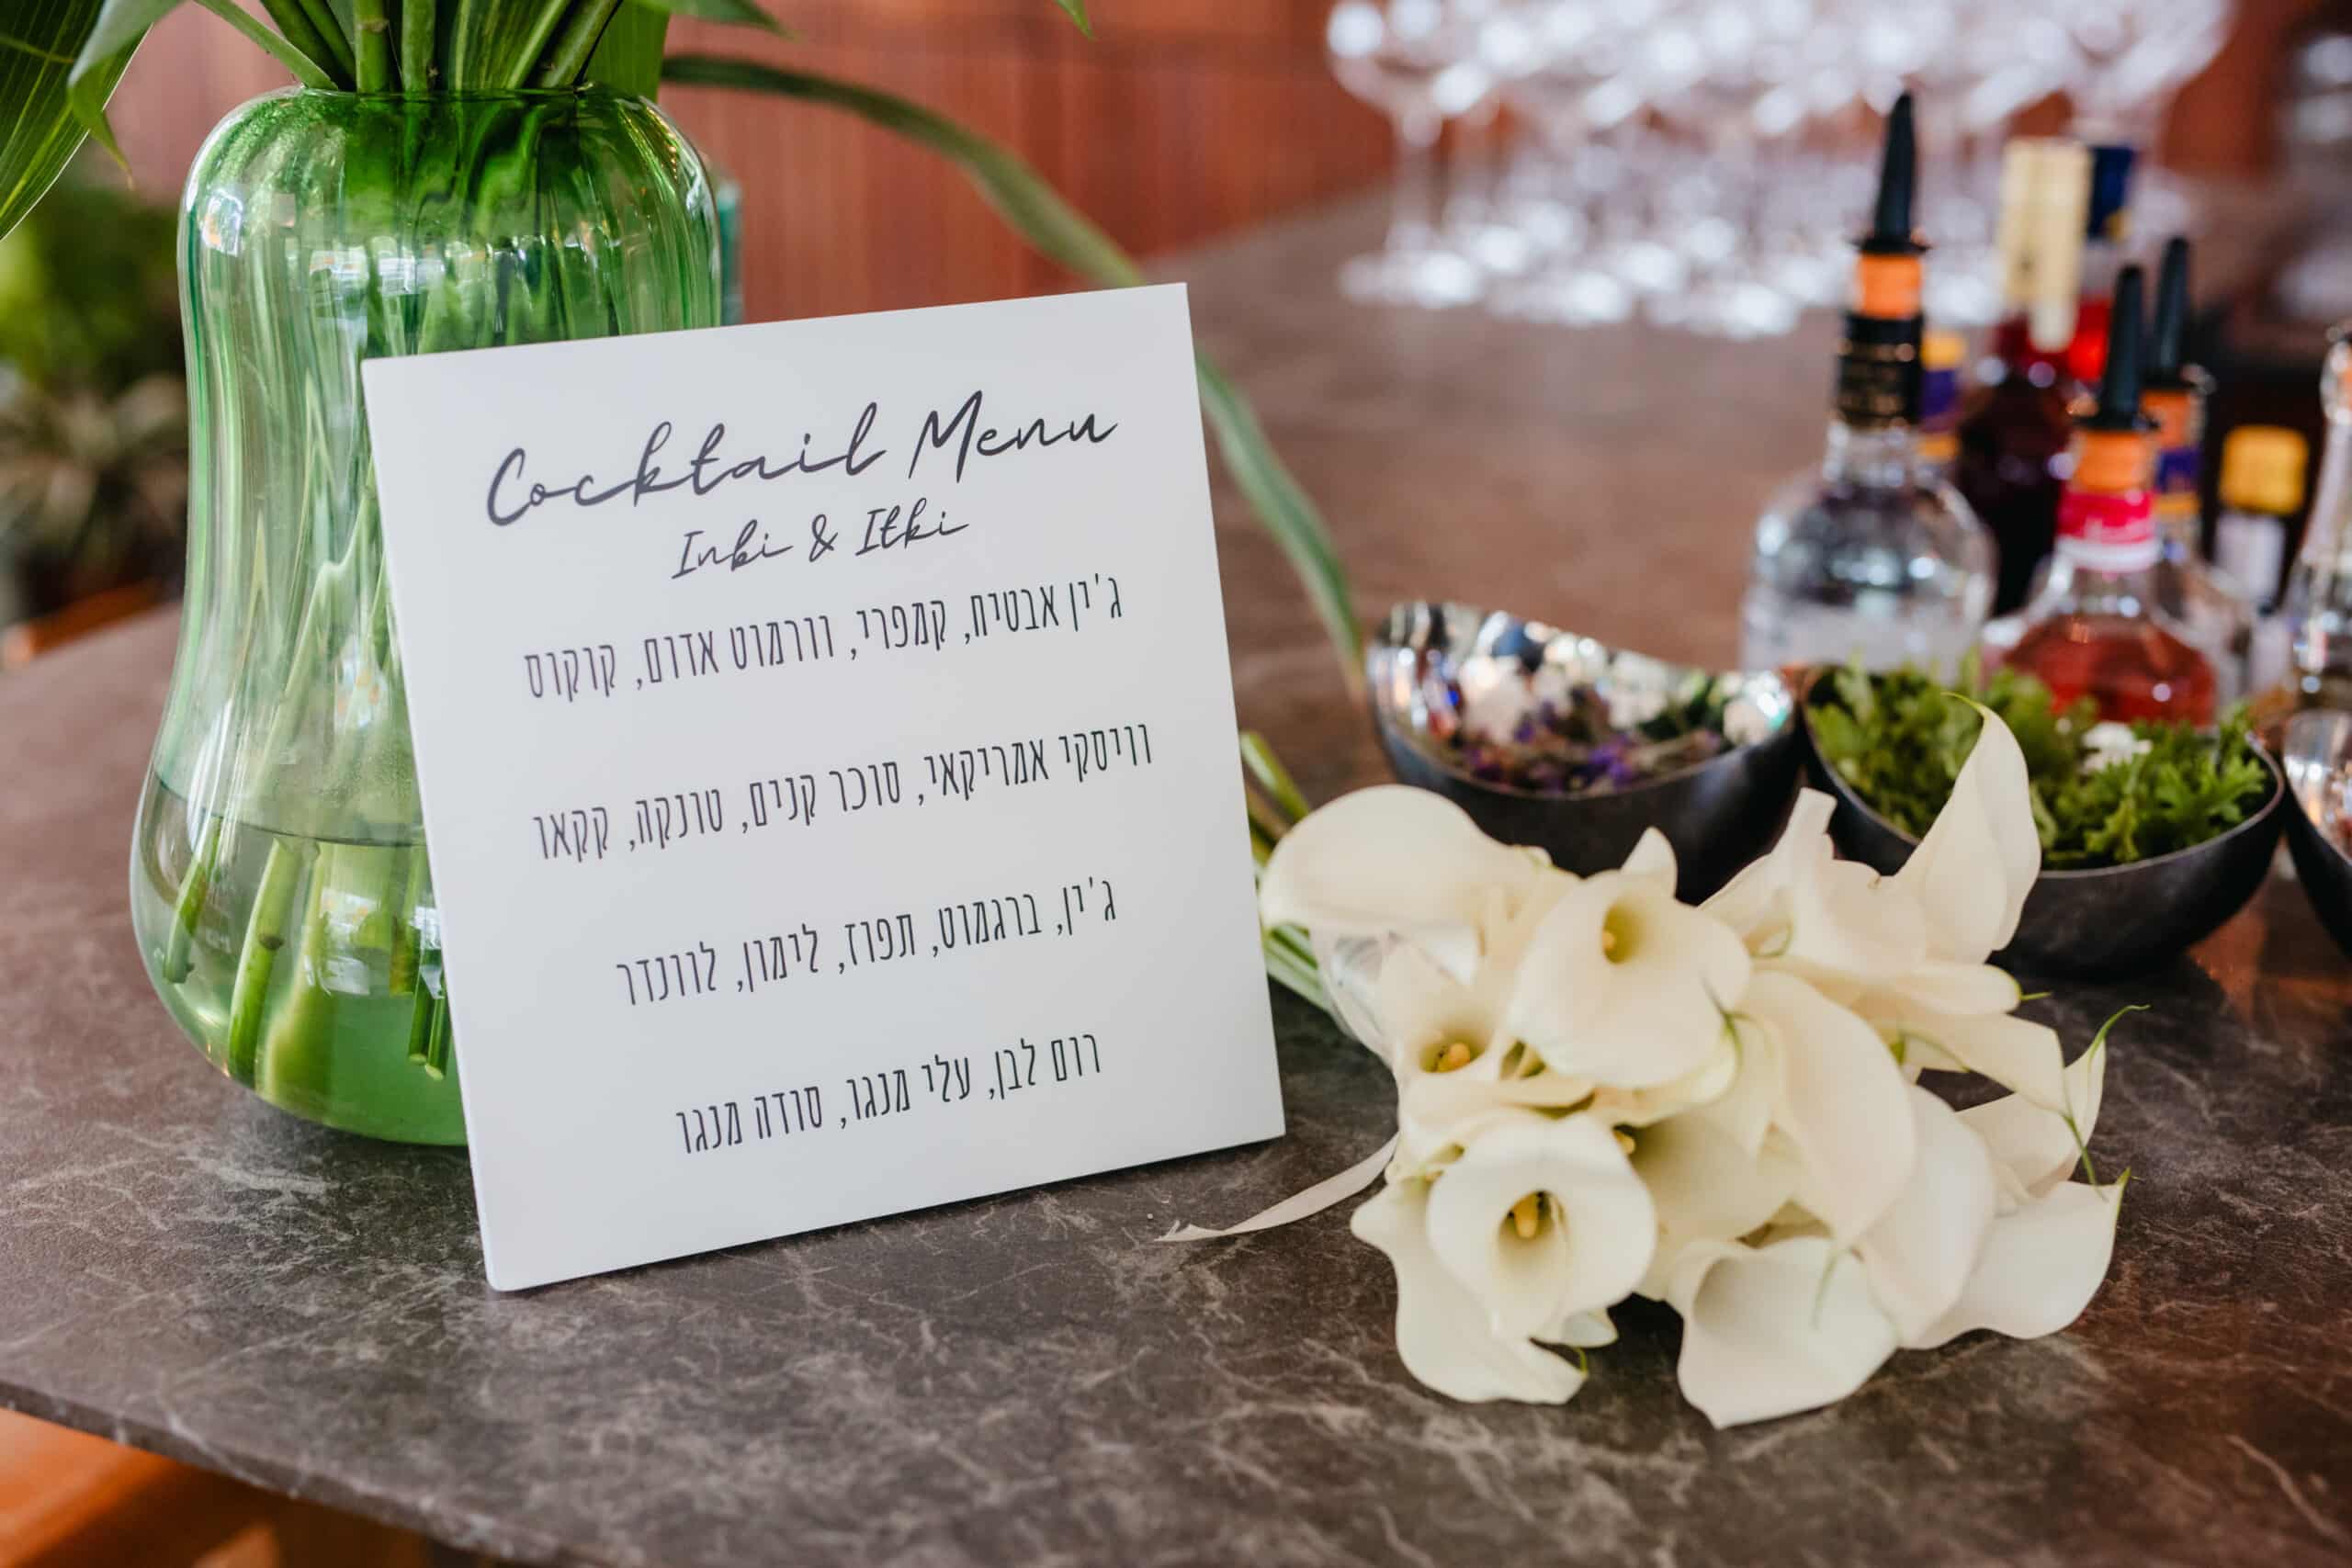 Cocktail Menu
Inbi & Itki
ג'ין אבטיח, קמפרי, וורמוט אדום, קוקוס
וויסקי אמריקאי, סוכר קנים, טונקה, קקאו
ג'ין, ברגמוט, תפוז, לימון, לוונדר
רום לבן, עלי מנגו, סודה מנגו